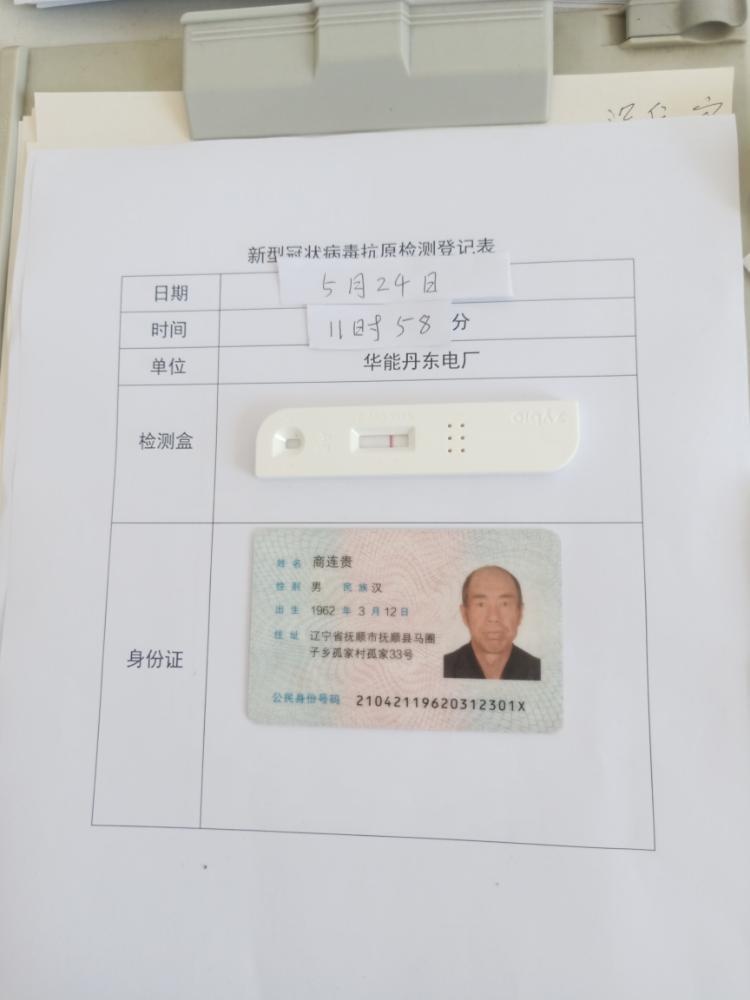 新型冠状病毒抗原检测登记表
日期 5月24日
时间 11时58分
单位 华能丹东电厂
检测盒
身份证
姓名 商连贵
性别 男 民族 汉
出生 1962年3月12日
住址 辽宁省抚顺市抚顺县马圈
子乡孤家村孤家33号
公民身份号码 21042119620312301X